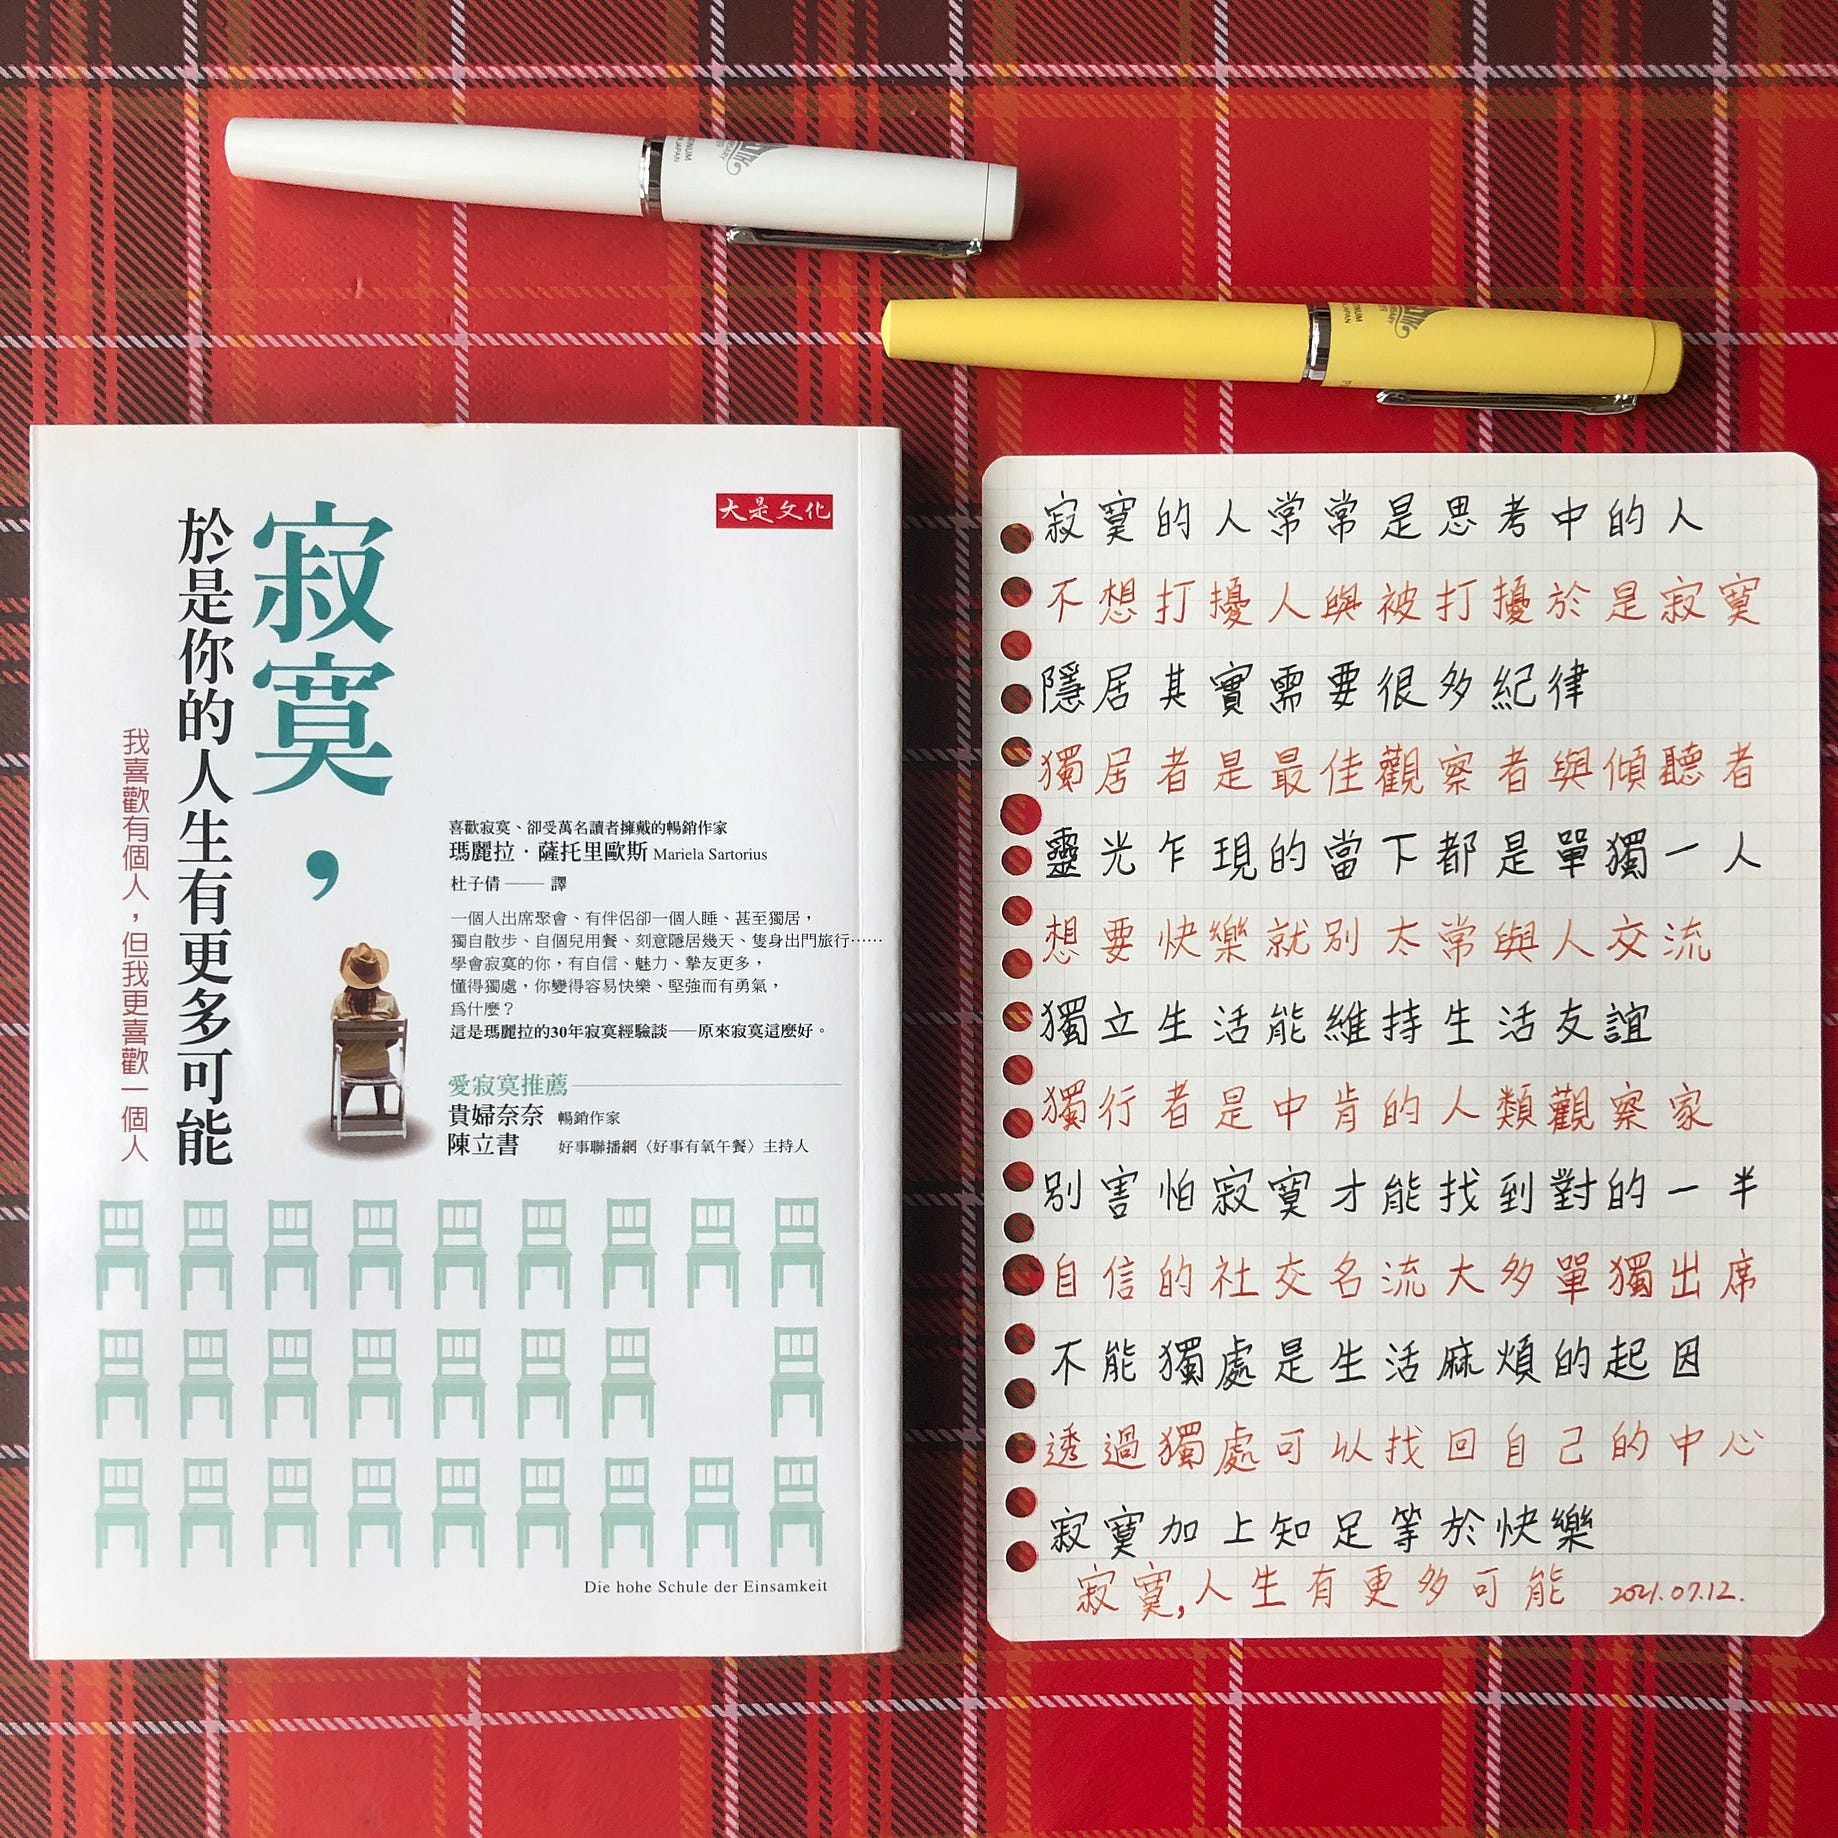 大是文化
寂寞，
於是你的人生有更多可能
我喜歡有個人，但我更喜歡一個人
喜歡寂寞、卻受萬名讀者擁戴的暢銷作家
瑪麗拉．薩托里歐斯 Mariela Sartorius
杜子倩——譯
一個人出席聚會、有伴侶卻一個人睡、甚至獨居，
獨自散步、自個兒用餐、刻意隱居幾天、隻身出門旅行……
學會寂寞的你，有自信、魅力、摯友更多，
懂得獨處，你變得容易快樂、堅強而有勇氣，
為什麼？
這是瑪麗拉的30年寂寞經驗談——原來寂寞這麼好。
愛寂寞推薦
貴婦奈奈 暢銷作家
陳立書 好事聯播網〈好事有氧午餐〉主持人
Die hohe Schule der Einsamkeit
寂寞的人常常是思考中的人
不想打擾人與被打擾於是寂寞
隱居其實需要很多紀律
獨居者是最佳觀察者與傾聽者
靈光乍現的當下都是單獨一人
想要快樂就別太常與人交流
獨立生活能維持生活友誼
獨行者是中肯的人類觀察家
別害怕寂寞才能找到對的一半
自信的社交名流大多單獨出席
不能獨處是生活麻煩的起因
透過獨處可以找回自己的中心
寂寞加上知足等於快樂
寂寞,人生有更多可能 2021.07.12.